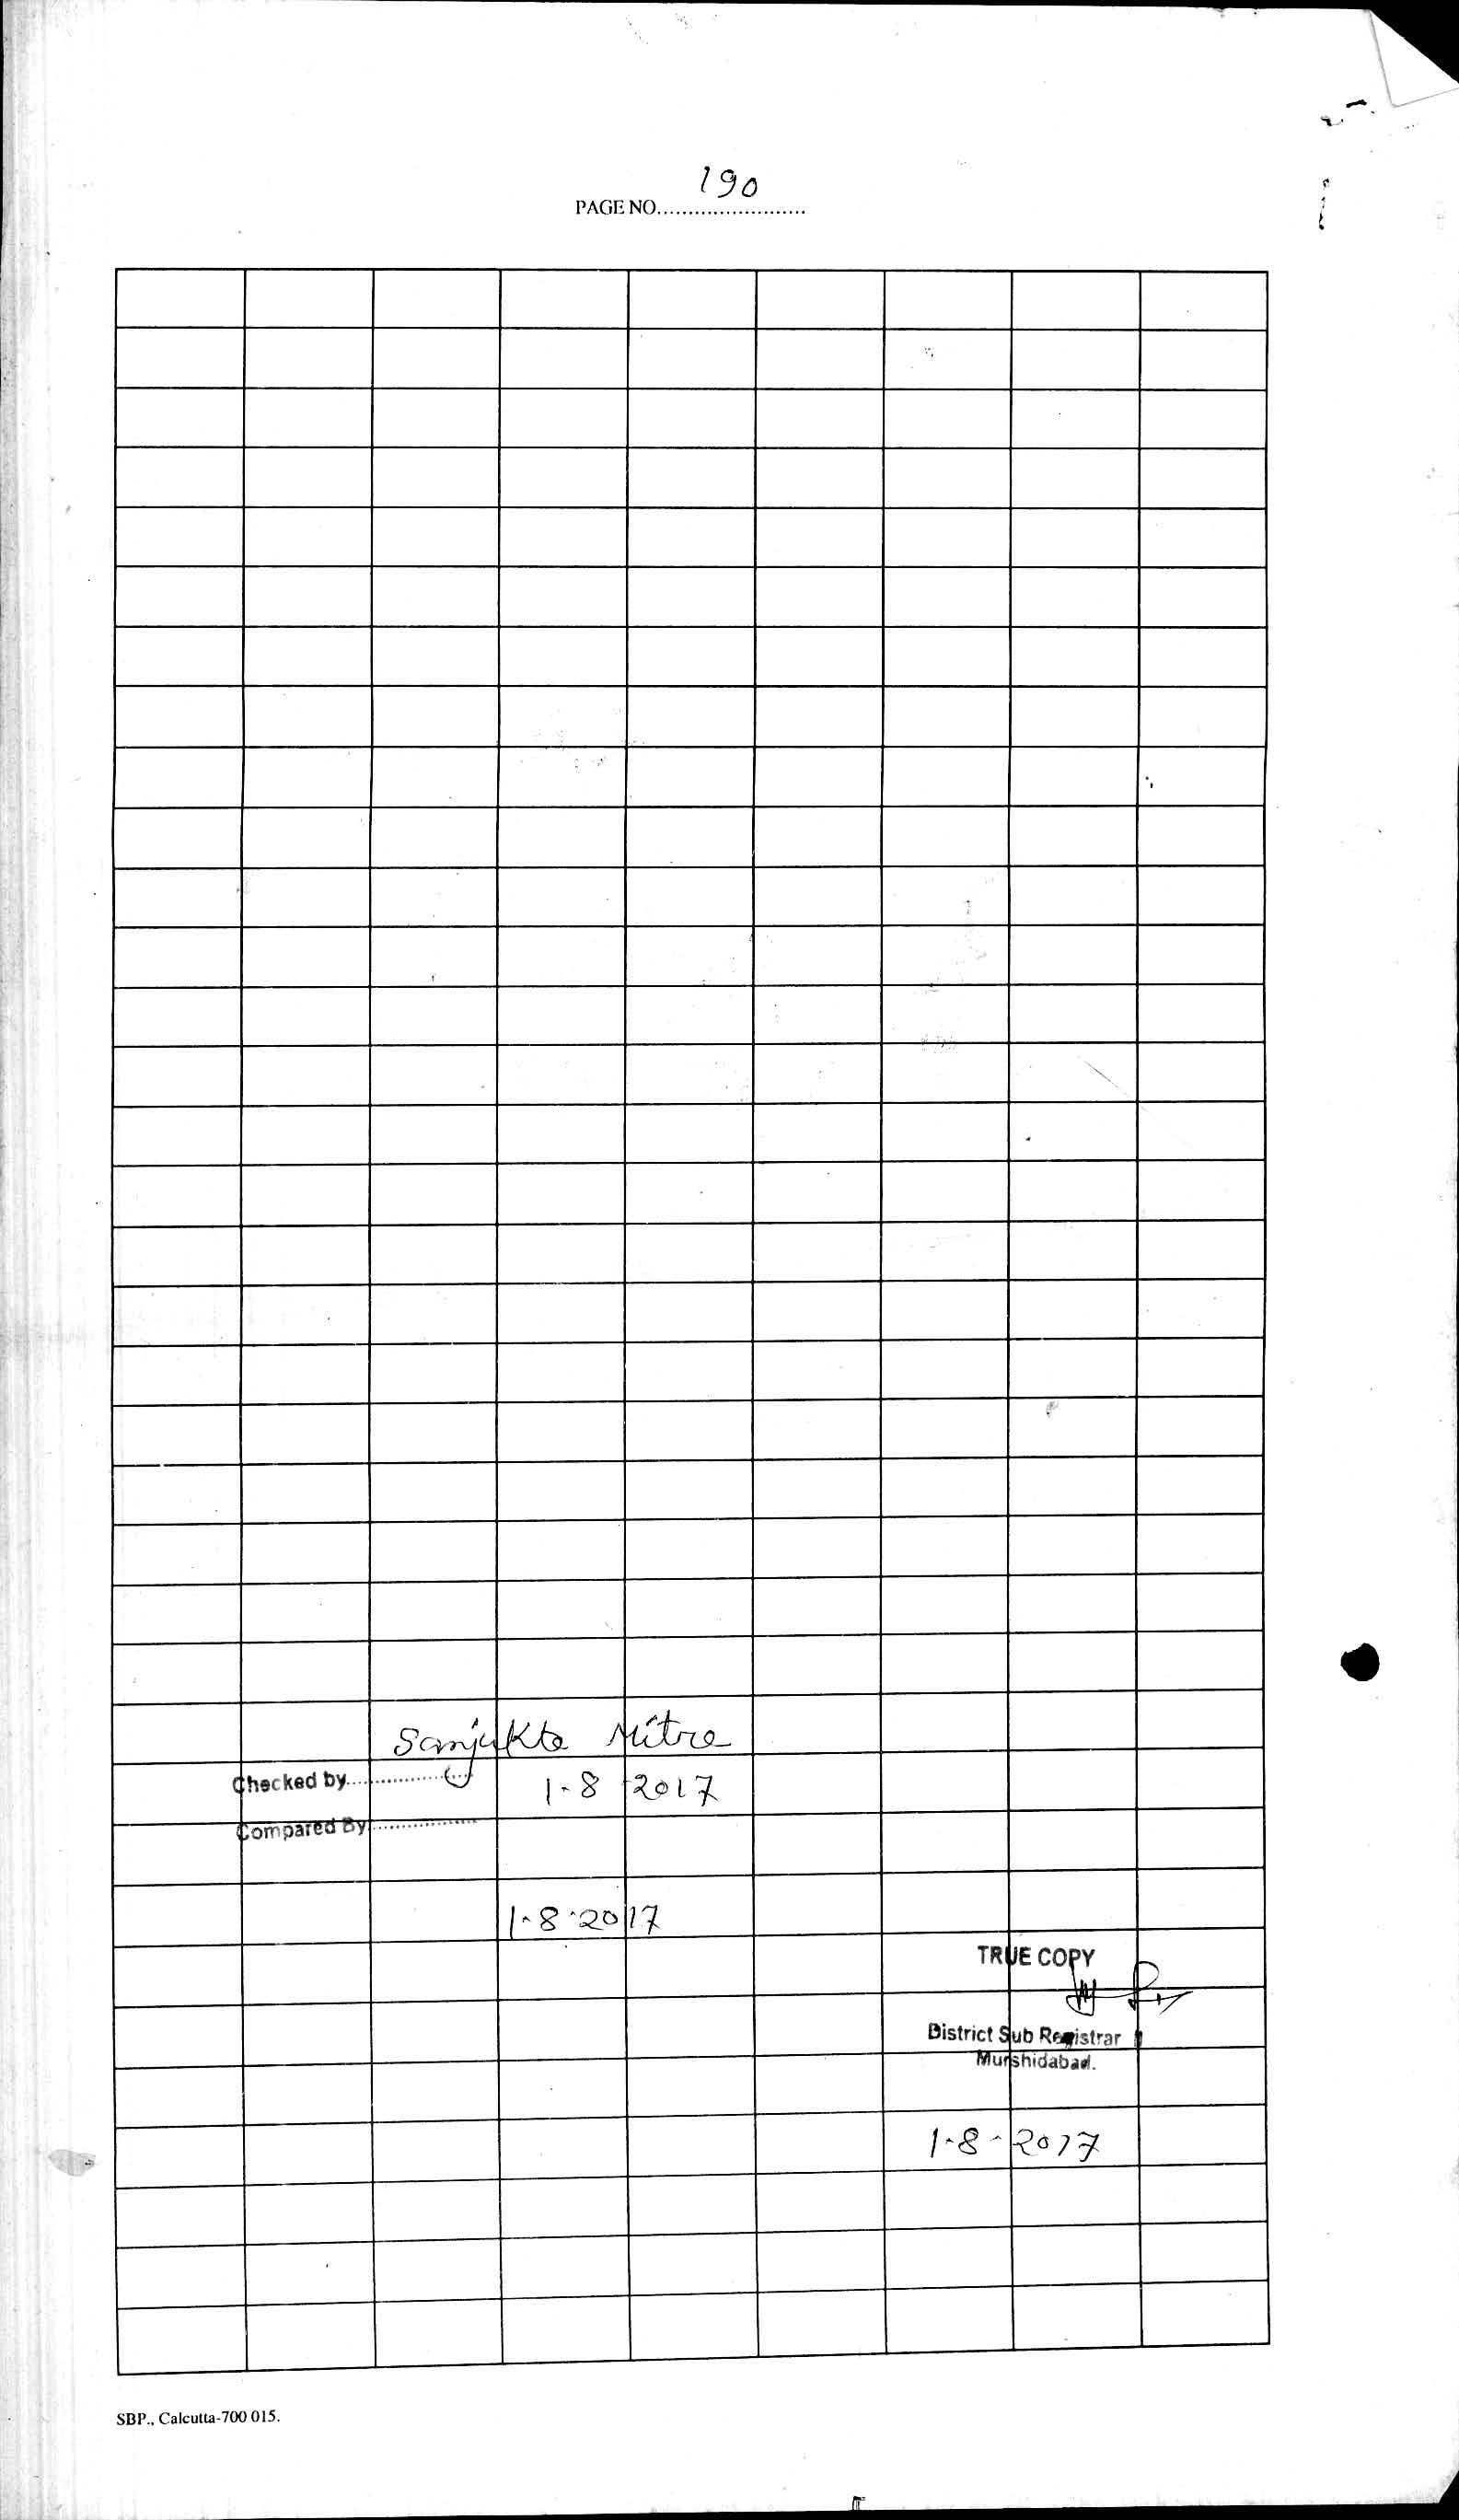 190
PAGE NO........................
Sanjukta Mitra
Checked by....................
1-8-2017
Compared By....................
1-8-2017
TRUE COPY
District Sub Registrar
Murshidabad.
1-8-2017
SBP., Calcutta-700 015.